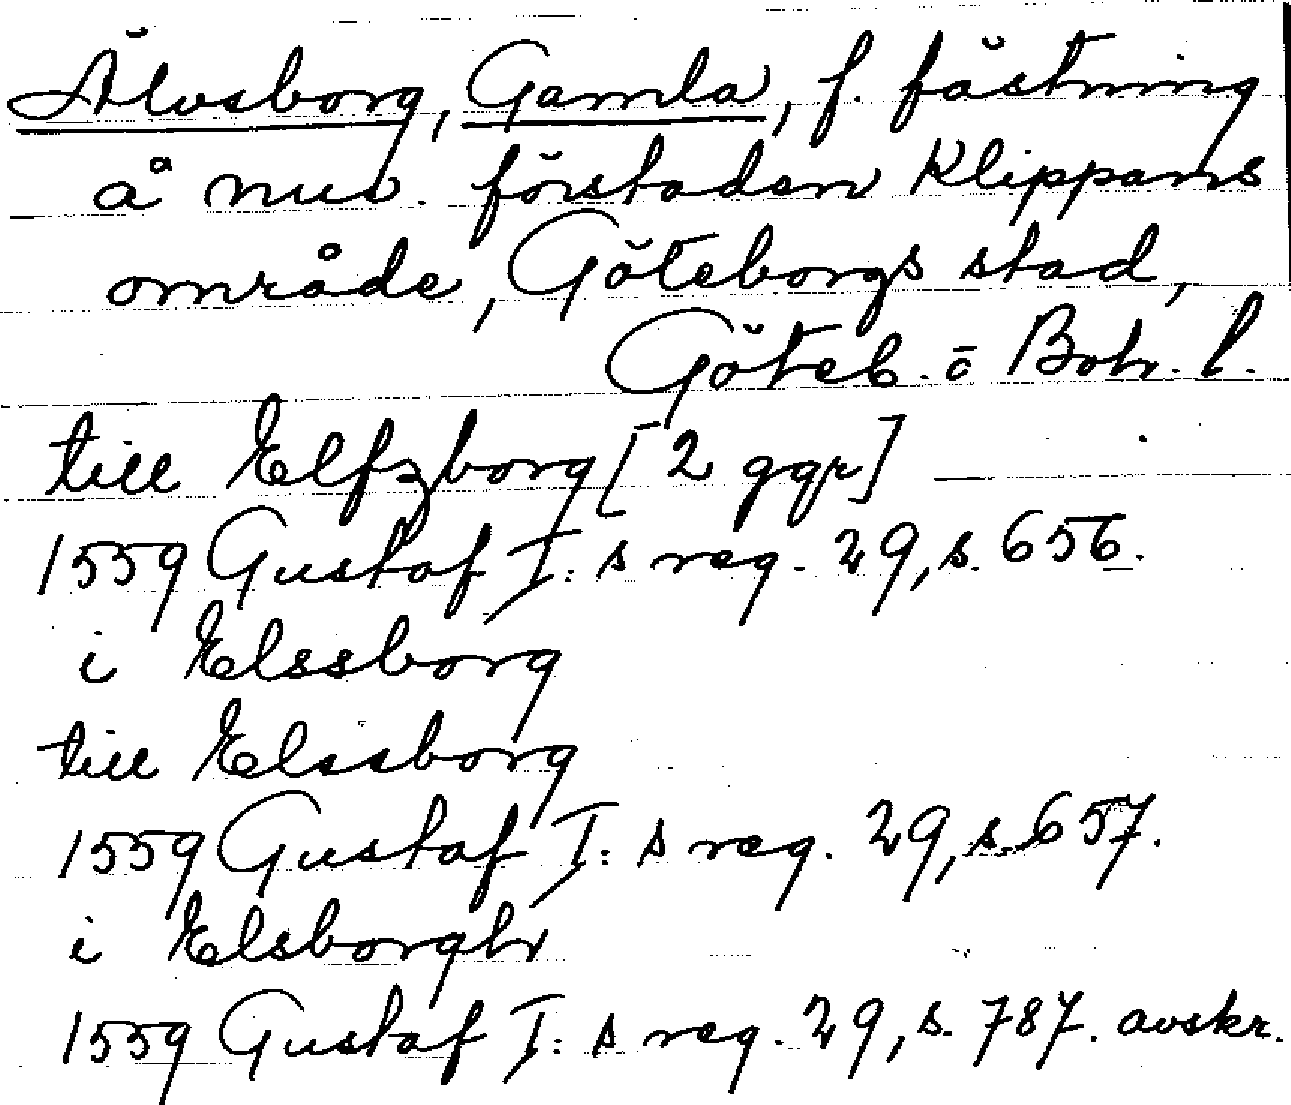 Älvsborg, Gamla, f. fästning
å nuv. förstaden Klippans
område, Göteborgs stad,
Göteb. o Boh. l.
till Elfzborg [2 ggr]
1559 Gustaf I:s reg. 29, s. 656.
i Elssborg
till Elssborg
1559 Gustaf I:s reg. 29, s. 657.
i Elsborgh
1559 Gustaf I:s reg. 29, s. 787. avskr.